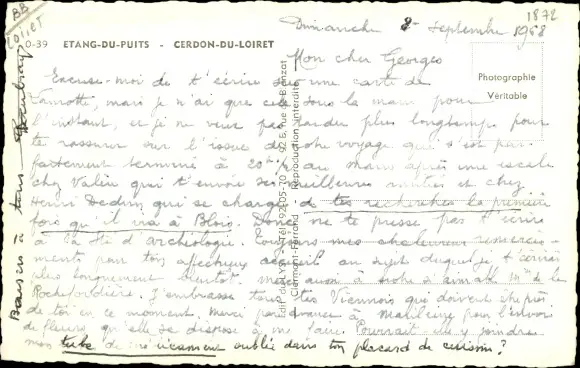 1872
BB
LOIRET
Dimanche 8 Septembre 1968
0-39 ETANG-DU-PUITS - CERDON-DU-LOIRET
Mon cher Georges
Photographie
Véritable
Excuse-moi de t'écrire sur une carte de
mais je n'ai que cela sous la main pour
l'instant, et je ne veux pas tarder plus longtemps pour
te rassurer sur l'issue de notre voyage qui s'est par
faitement terminé à 20h au Mans après une escale
chez qui t'envoie ses meilleures amitiés et chez
Henri qui se charge de tes recherches la première
fois qu'il ira à Blois. Donc ne te presse pas d'écrire
à la Sté d'archéologie. mes chaleureux remercie-
ments pour ton affectueux accueil au sujet duquel je t'écrirai
plus longuement bientôt. merci aussi à Mme de la
J'embrasse tous tes Viennois que doivent être près
de toi en ce moment. Merci d'avance à pour l'envoi
de fleurs qu'elle se dispose à me faire. Pourrait-elle y joindre
mon tube de oublié dans ton placard de cuisine?
Baisers à tous
Edit. du LYS - Tél. 92-05-70 - 92 &, rue de Blanzat
Clermont-Ferrand Reproduction interdite